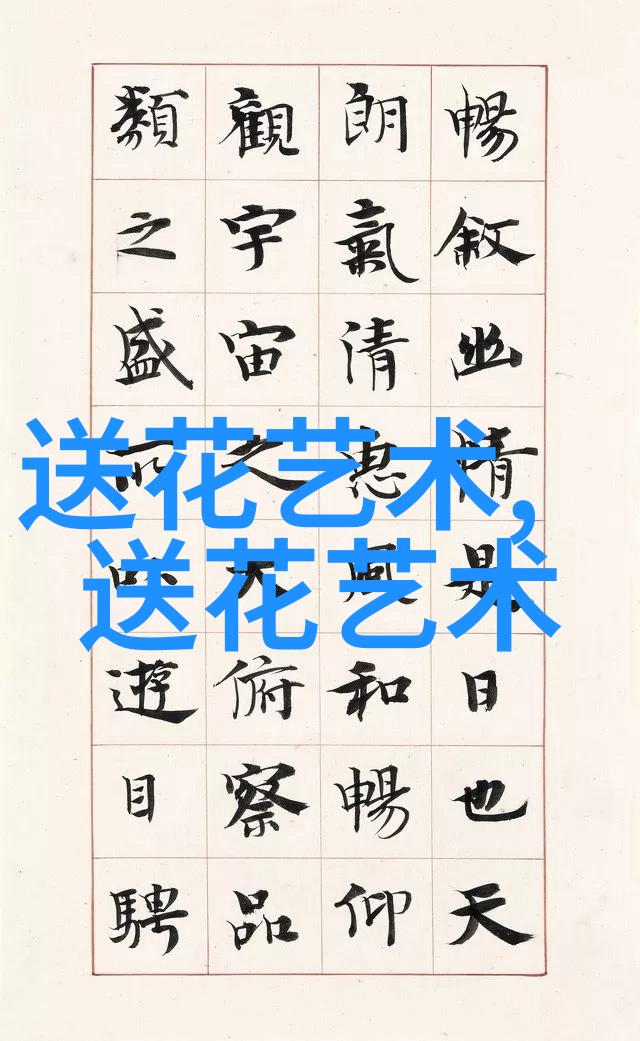 暢敘幽情是日也天
朗氣清惠風和暢仰
觀宇宙之大俯察品
類之盛所以遊目騁
送花艺术,
送花艺术